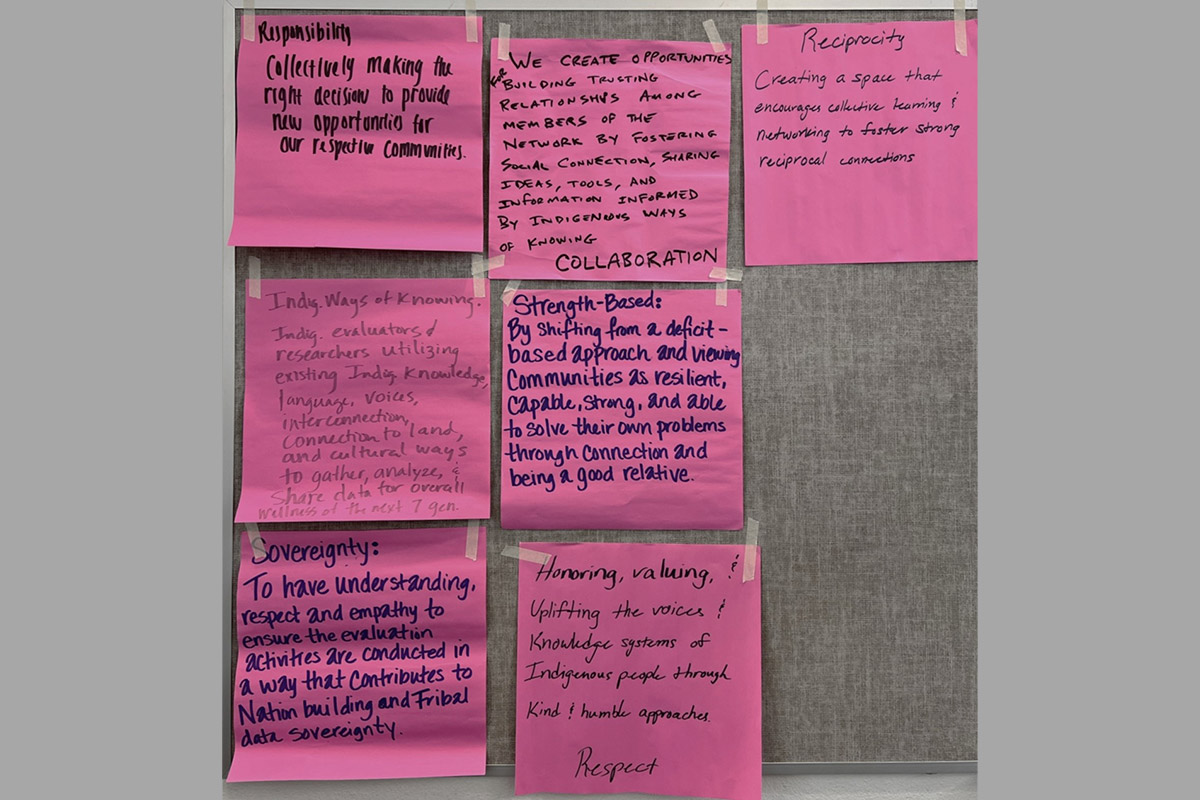 Responsibility
Collectively making the
right decision to provide
new opportunities for
our respective Communities.
WE CREATE OPPORTUNITIES
for BUILDING TRUSTING
RELATIONSHIPS AMONG
MEMBERS OF THE
NETWORK BY FOSTERING
SOCIAL CONNECTION, SHARING
IDEAS, TOOLS, AND
INFORMATION INFORMED
BY INDIGENOUS WAYS
OF KNOWING
COLLABORATION
Reciprocity
Creating a space that
encourages collective learning &
networking to foster strong
reciprocal connections
Indig. Ways of Knowing.
Indig. evaluators &
researchers utilizing
existing Indig Knowledge,
language, voices,
interconnection,
connection to land,
and cultural ways
to gather, analyze, &
Share data for overall
wellness of the next 7 gen.
Strength-Based:
By shifting from a deficit-
based approach and viewing
Communities as resilient,
Capable, Strong, and able
to solve their own problems
through Connection and
being a good relative.
Sovereignty:
To have understanding,
respect and empathy to
ensure the evaluation
activities are conducted in
a way that Contributes to
Nation building and Tribal
data sovereignty.
Honoring, valuing, &
Uplifting the voices &
Knowledge systems of
Indigenous people through
Kind & humble approaches.
Respect